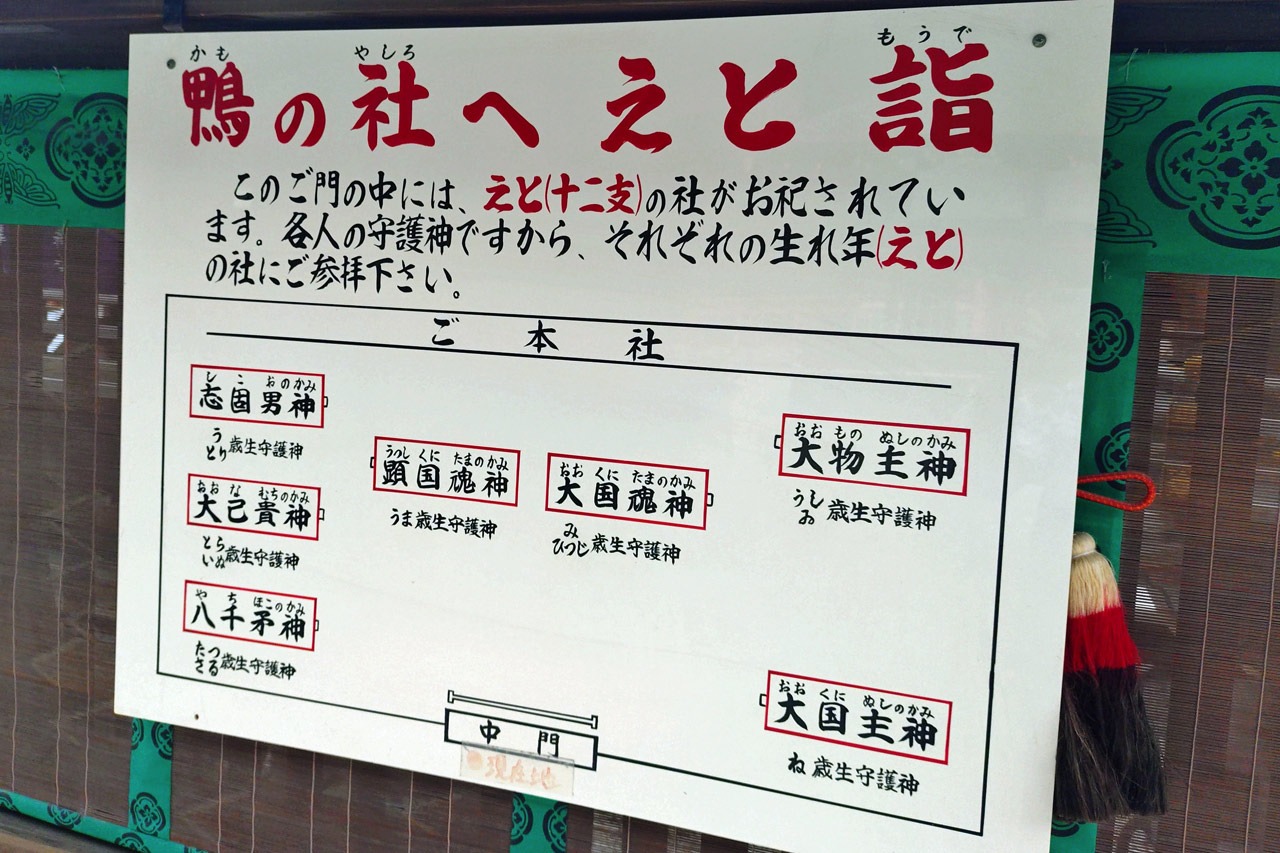 かも やしろ もうで
鴨の社へえと詣
このご門の中には、えと(十二支)の社がお祀されてい
ます。各人の守護神ですから、それぞれの生れ年(えと)
の社にご参拝下さい。
ご本社
しこおのかみ
志固男神
うとり歳生守護神
おおなむちのかみ
大己貴神
とらいぬ歳生守護神
やちほこのかみ
八千矛神
たつさる歳生守護神
うつしくにたまのかみ
顕国魂神
うま歳生守護神
おおくにたまのかみ
大国魂神
みひつじ歳生守護神
おおものぬしのかみ
大物主神
うしお歳生守護神
おおくにぬしのかみ
大国主神
ね歳生守護神
中門
現在地